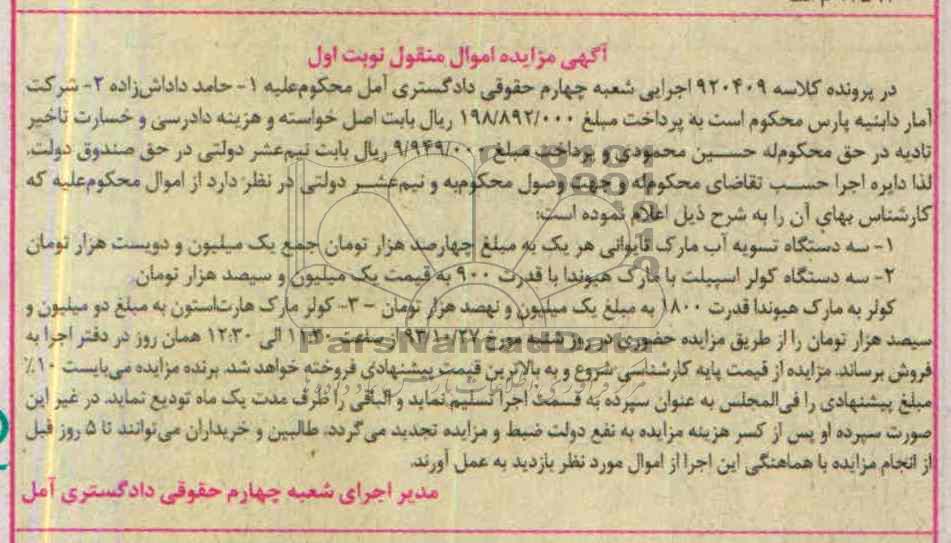 آگهی مزایده اموال منقول نوبت اول
در پرونده کلاسه ۹۲۰۴۰۹ اجرایی شعبه چهارم حقوقی دادگستری آمل محکوم‌علیه ۱- حامد داداش‌زاده ۲- شرکت
آمار دابنیه پارس محکوم است به پرداخت مبلغ ۱۹۸/۸۹۲/۰۰۰ ریال بابت اصل خواسته و هزینه دادرسی و خسارت تاخیر
تادیه در حق محکوم‌له حسین محمودی و پرداخت مبلغ ۹/۹۴۹/۰۰۰ ریال بابت نیم‌عشر دولتی در حق صندوق دولت.
لذا دایره اجرا حسب تقاضای محکوم‌له و جهت وصول محکوم‌به و نیم‌عشر دولتی در نظر دارد از اموال محکوم‌علیه که
کارشناس بهای آن را به شرح ذیل اعلام نموده است:
۱- سه دستگاه تسویه آب مارک تایوانی هر یک به مبلغ چهارصد هزار تومان جمع یک میلیون و دویست هزار تومان
۲- سه دستگاه کولر اسپیلت با مارک هیوندا با قدرت ۹۰۰ به قیمت یک میلیون و سیصد هزار تومان
کولر به مارک هیوندا قدرت ۱۸۰۰ به مبلغ یک میلیون و نهصد هزار تومان - ۳- کولر مارک هارت‌استون به مبلغ دو میلیون و
سیصد هزار تومان را از طریق مزایده حضوری در روز شنبه مورخ ۹۳/۱۰/۲۷ از ساعت ۱۱:۳۰ الی ۱۲:۳۰ همان روز در دفتر اجرا به
فروش برساند. مزایده از قیمت پایه کارشناسی شروع و به بالاترین قیمت پیشنهادی فروخته خواهد شد. برنده مزایده می‌بایست ۱۰٪
مبلغ پیشنهادی را فی‌المجلس به عنوان سپرده به قسمت اجرا تسلیم نماید و الباقی را ظرف مدت یک ماه تودیع نماید. در غیر این
صورت سپرده او پس از کسر هزینه مزایده به نفع دولت ضبط و مزایده تجدید می‌گردد. طالبین و خریداران می‌توانند تا ۵ روز قبل
از انجام مزایده با هماهنگی این اجرا از اموال مورد نظر بازدید به عمل آورند.
مدیر اجرای شعبه چهارم حقوقی دادگستری آمل
ParsNamadData